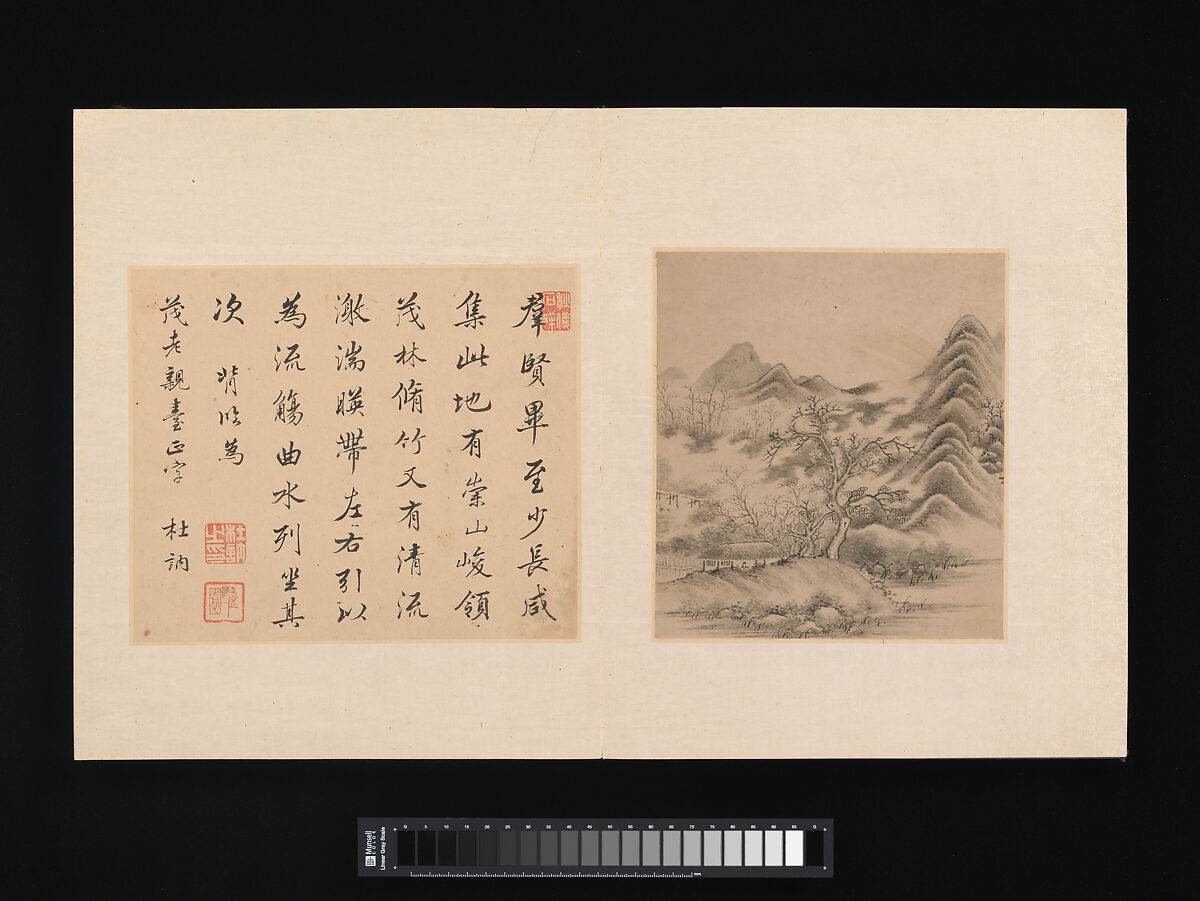 羣賢畢至少長咸
集此地有崇山峻領
茂林脩竹又有清流
激湍暎帶左右引以
為流觴曲水列坐其
次 背臨為
茂老親臺正字 杜訥
杜訥之印
Munsell
COLOR
Linear Gray Scale
G 5 10 15 20 25 30 35 40 45 50 55 60 65 70 75 80 85 90 95 G
mm